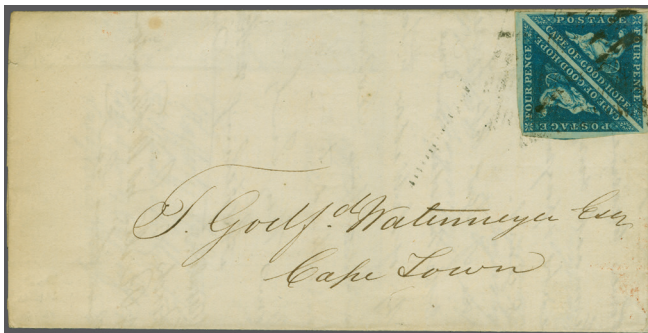 POSTAGE
FOUR PENCE
CAPE OF GOOD HOPE
FOUR PENCE
CAPE OF GOOD HOPE
FOUR PENCE
POSTAGE
T. Godf.d Watermeyer Esqr
Cape Town